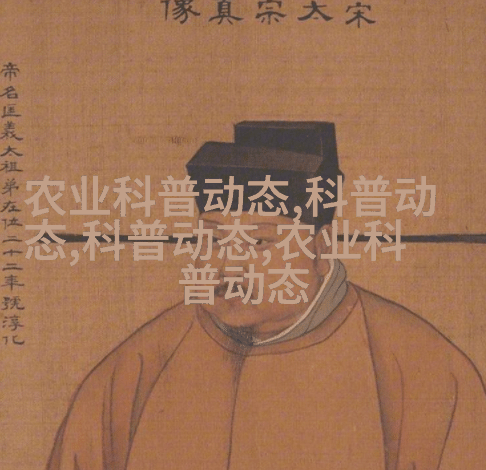 宋太宗真像
帝名匡義太祖弟在位二十二年號淳化
农业科普动态,科普动
态,科普动态,农业科
普动态